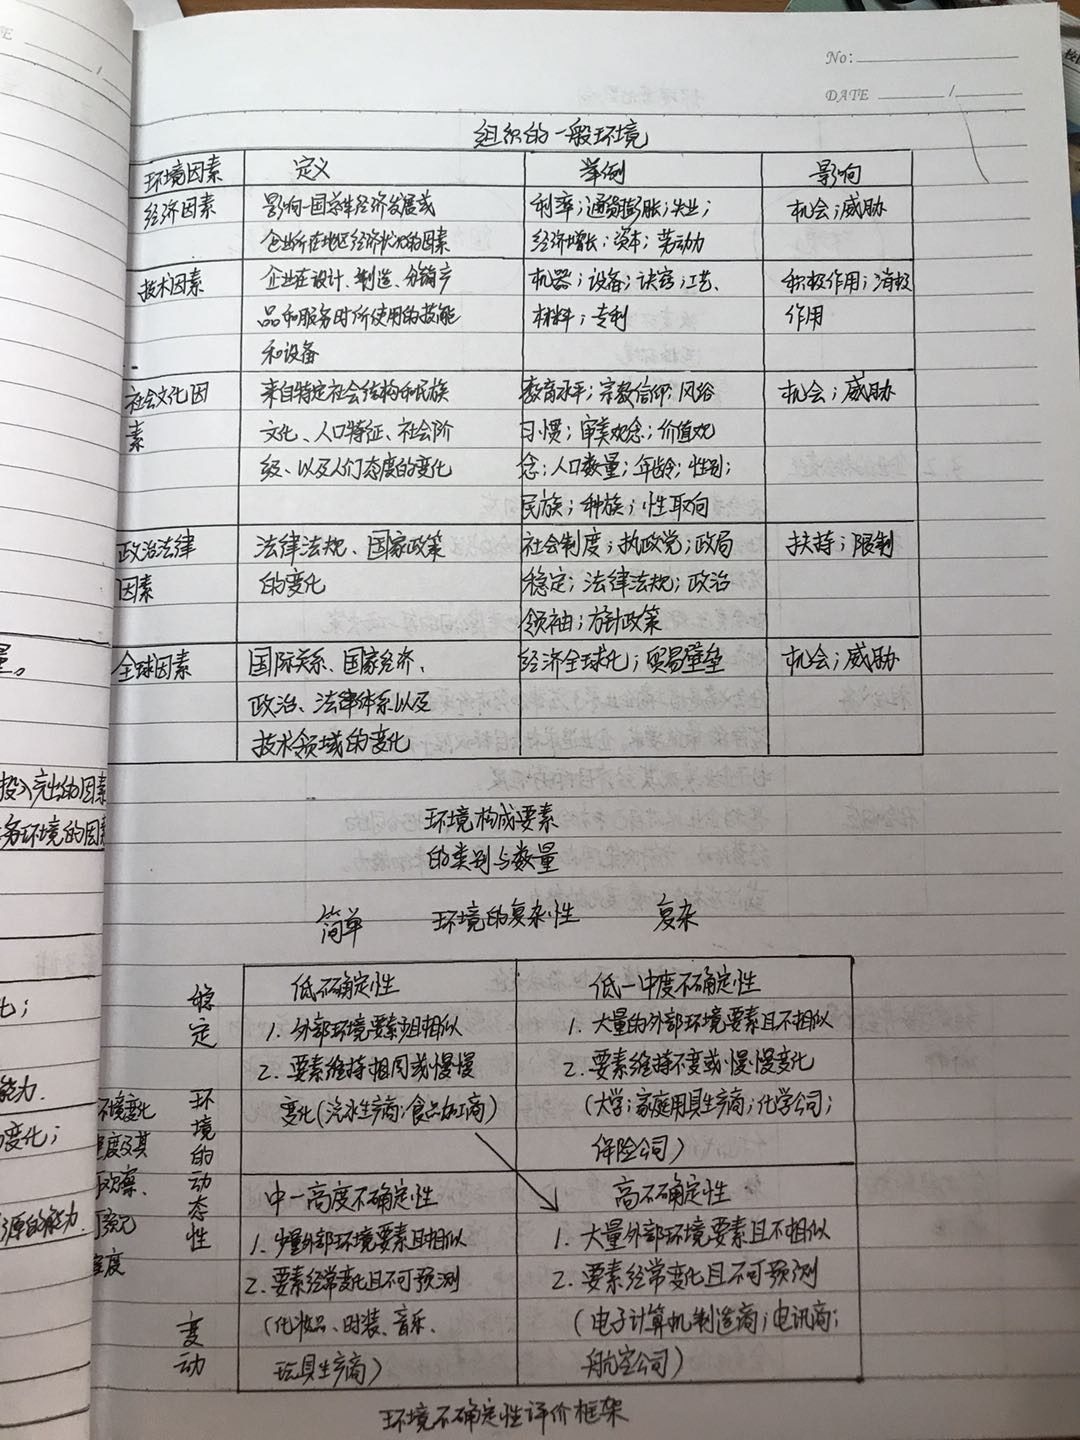 No:
DATE /
组织的一般环境
环境因素 定义 举例 影响
经济因素 影响一国整体经济发展或 利率；通货膨胀；失业； 机会；威胁
企业所在地区经济状况的因素 经济增长；资本；劳动力
技术因素 企业在设计、制造、分销产 机器；设备；诀窍；工艺、 积极作用；消极
品和服务时所使用的技能 材料；专利 作用
和设备
社会文化因 来自特定社会结构和民族 教育水平；宗教信仰；风俗 机会；威胁
素 文化、人口特征、社会阶 习惯；审美观念；价值观
级、以及人们态度的变化 念；人口数量；年龄；性别；
民族；种族；性取向
政治法律 法律法规、国家政策 社会制度；执政党；政局 扶持；限制
因素 的变化 稳定；法律法规；政治
领袖；方针政策
全球因素 国际关系、国家经济、 经济全球化；贸易壁垒 机会；威胁
政治、法律体系以及
技术领域的变化
投入产出的因素
务环境的因素
环境构成要素
的类别与数量
简单 环境的复杂性 复杂
稳定 低不确定性 低一中度不确定性
1. 外部环境要素少且相似 1. 大量的外部环境要素且不相似
2. 要素维持相同或慢慢 2. 要素维持不变或慢慢变化
变化(汽水生产商；食品加工商) (大学；家庭用具生产商；化学公司；
保险公司)
环境的动态性
环境变化
程度及其
可观察、
可预见
程度
中一高度不确定性 高不确定性
1. 少量外部环境要素且相似 1. 大量外部环境要素且不相似
2. 要素经常变化且不可预测 2. 要素经常变化且不可预测
变动 (化妆品、时装、音乐、 (电子计算机制造商；电讯商；
玩具生产商) 航空公司)
环境不确定性评价框架
化；
能力.
变化；
源的能力
量。